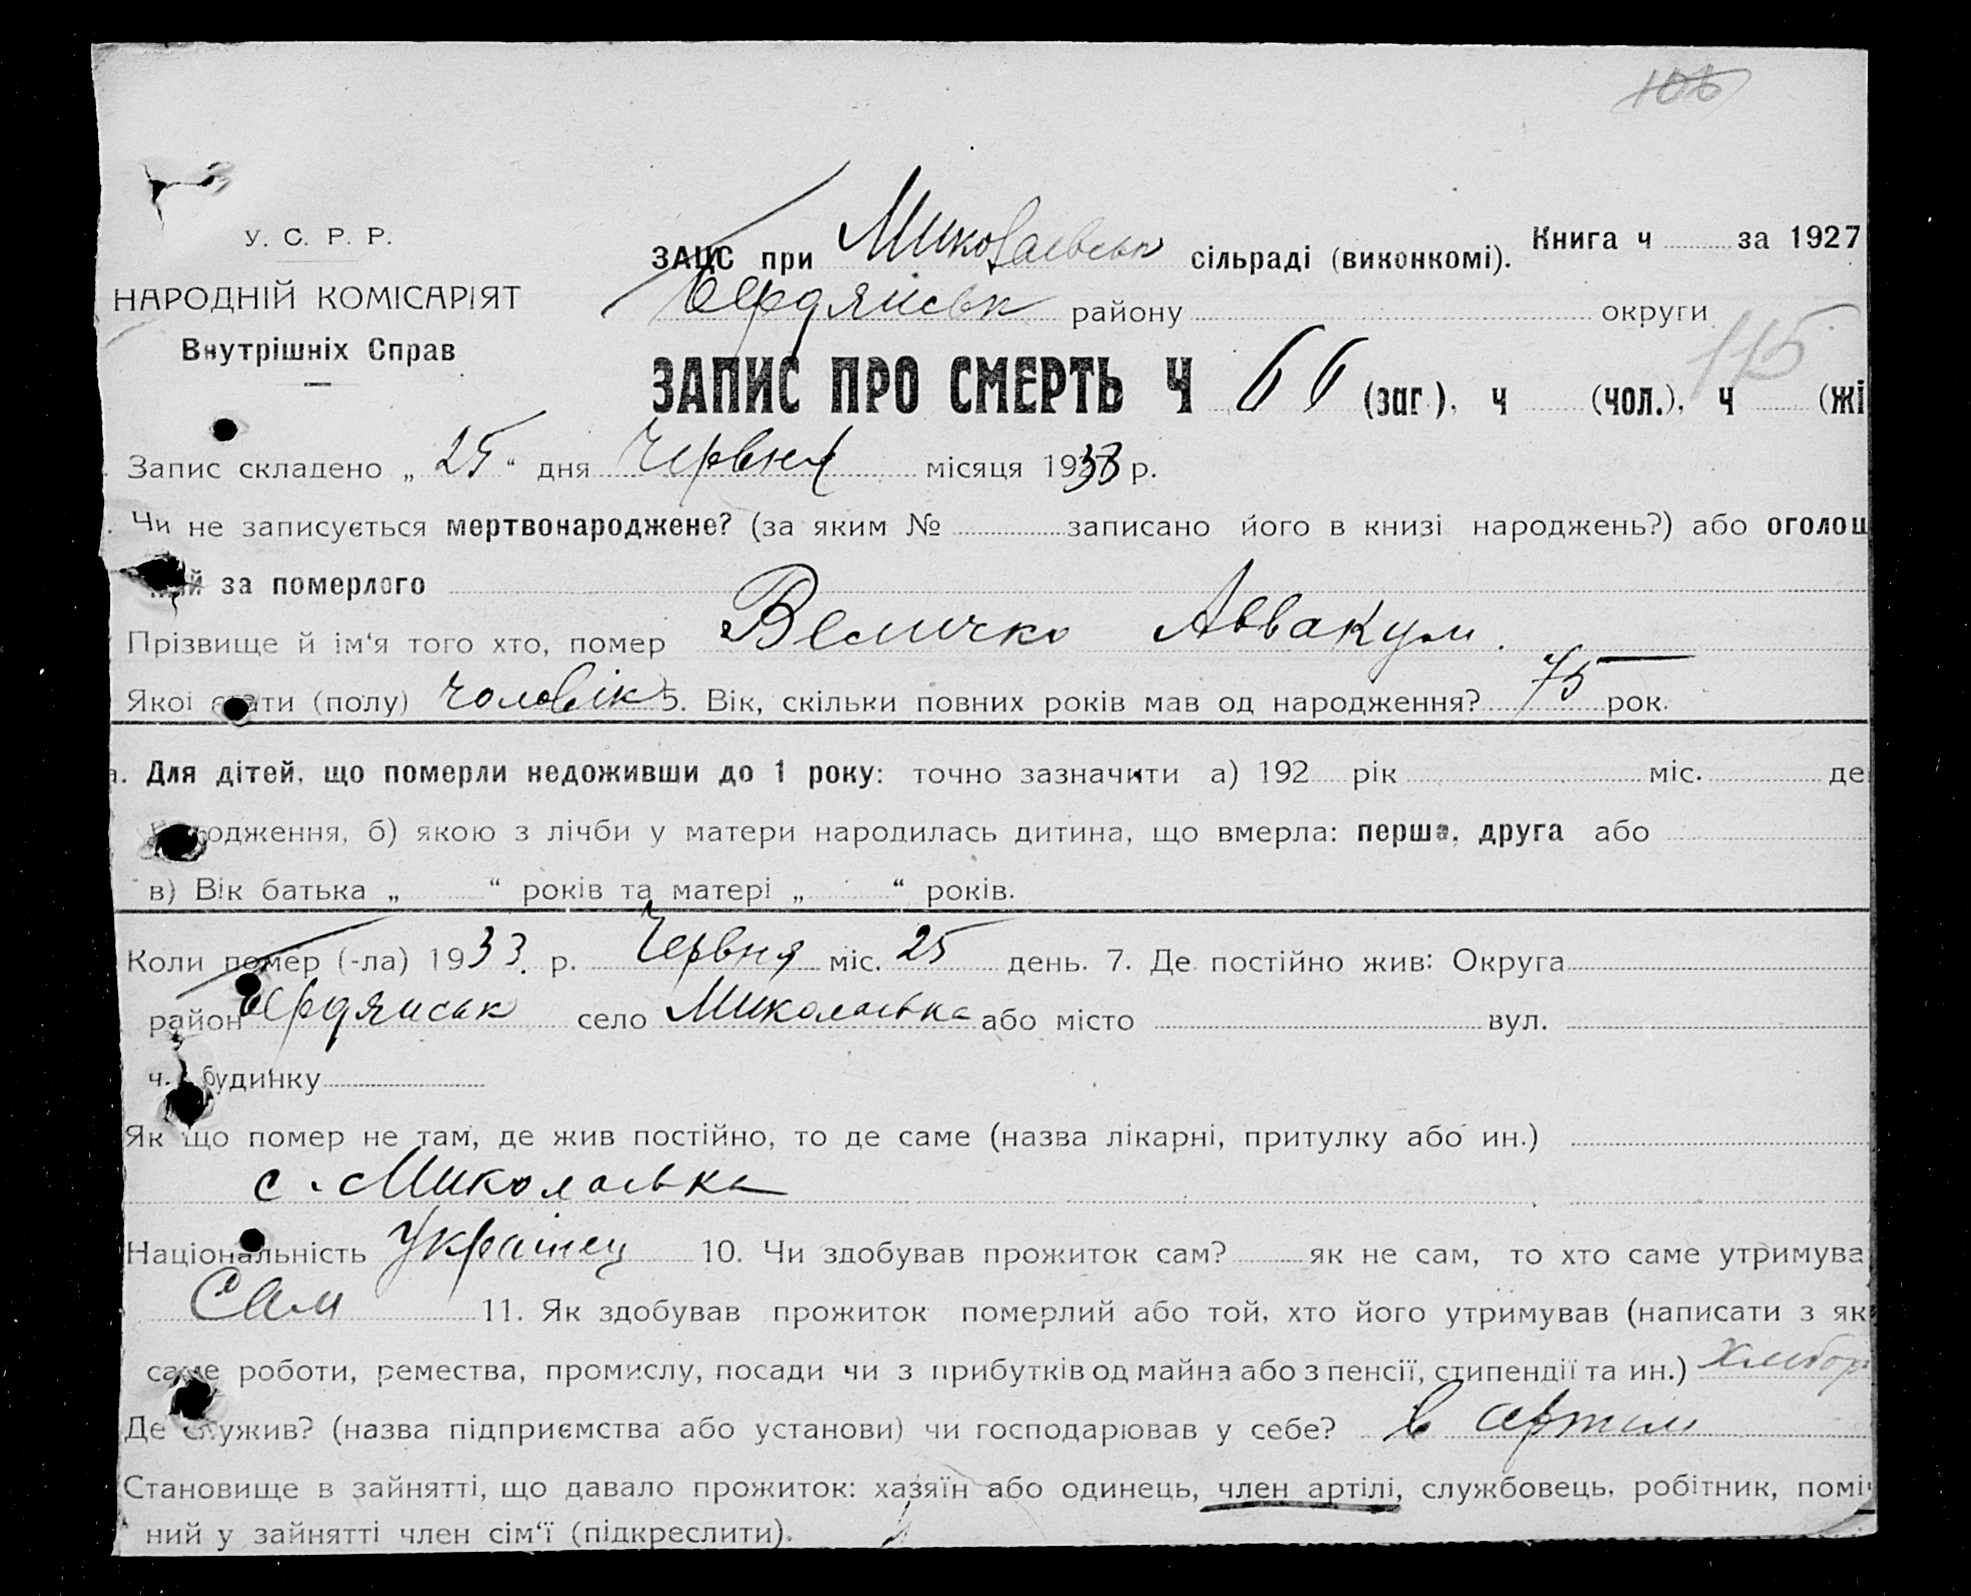 106
У. С. Р. Р.
НАРОДНІЙ КОМІСАРІЯТ
Внутрішніх Справ
Книга ч за 1927
ЗАЦС при Миколаєвськ сільраді (виконкомі).
Бердянськ району округи
115
ЗАПИС ПРО СМЕРТЬ Ч 66 (заг.), ч (чол.), ч (жі
Запис складено „ 25 “ дня Червня місяця 1933 р.
Чи не записується мертвонароджене? (за яким № записано його в книзі народжень?) або оголош
ний за померлого
Прізвище й ім‘я того хто, помер Величко Аввакум.
Якої стати (полу) чоловік 5. Вік, скільки повних років мав од народження? 75 рок.
а. Для дітей, що померли недоживши до 1 року: точно зазначити а) 192 рік міс. де
народження, б) якою з лічби у матери народилась дитина, що вмерла: перша, друга або
в) Вік батька „ “ років та матері „ “ років.
Коли помер (-ла) 1933. р. Червня міс. 25 день. 7. Де постійно жив: Округа
район Бердянськ село Миколаевка або місто вул.
ч. будинку
Як що помер не там, де жив постійно, то де саме (назва лікарні, притулку або ин.)
с. Миколаевка
Національність Українец 10. Чи здобував прожиток сам? як не сам, то хто саме утримува
Сам 11. Як здобував прожиток померлий або той, хто його утримував (написати з як
саме роботи, ремества, промислу, посади чи з прибутків од майна або з пенсії, стипендії та ин.) Хлибор
Де служив? (назва підприємства або установи) чи господарював у себе? в артили
Становище в зайнятті, що давало прожиток: хазяїн або одинець, член артілі, службовець, робітник, помі
ний у зайнятті член сім‘ї (підкреслити).